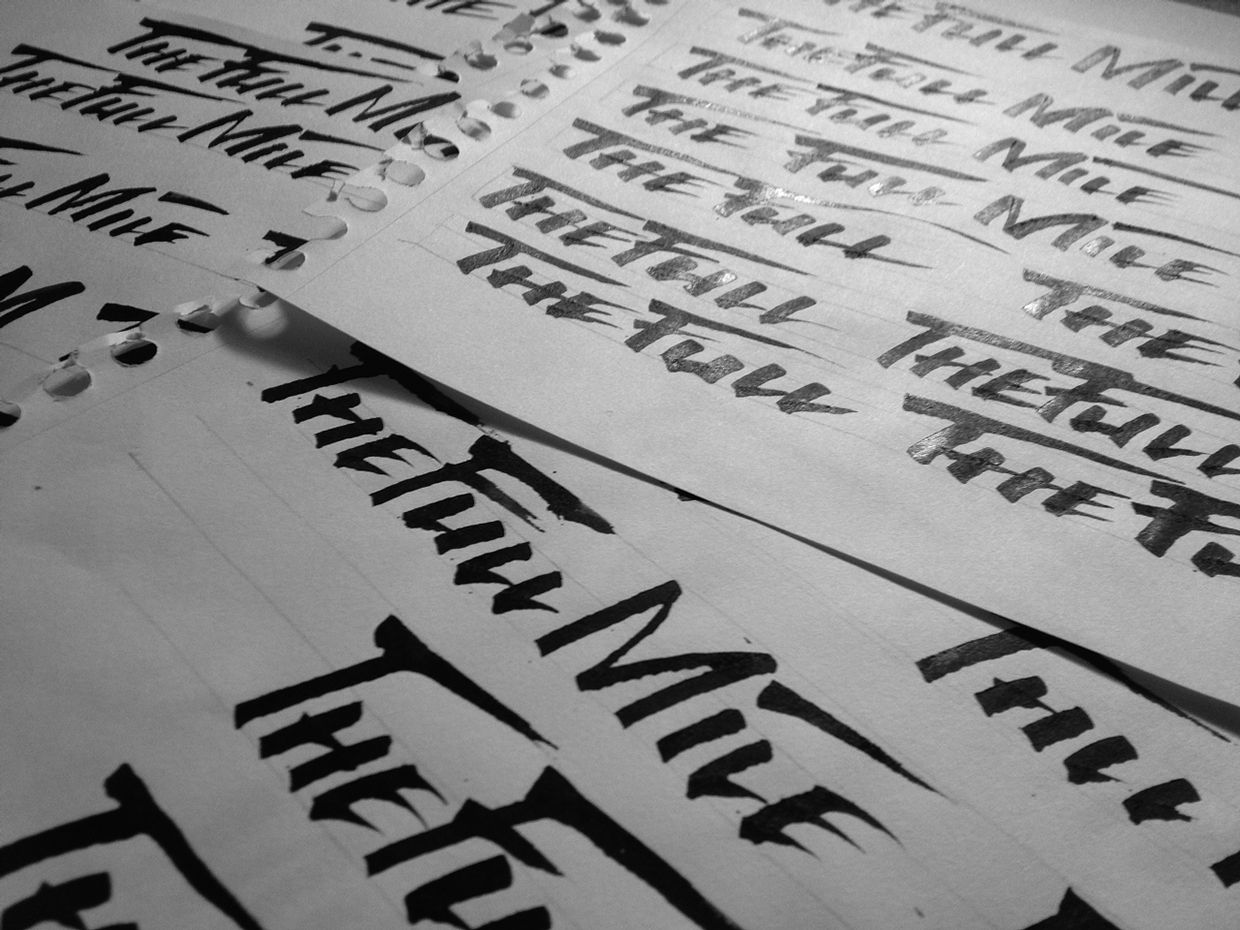 THE FULL M
THE FULL MILE
MILE
THE FULL MILE
THE FULL MILE
THE FULL MILE
THE FULL MILE
THE FULL MILE
THE FULL
THE FULL
THE
THE FULL
THE FU
THE FULL MILE
THE FU